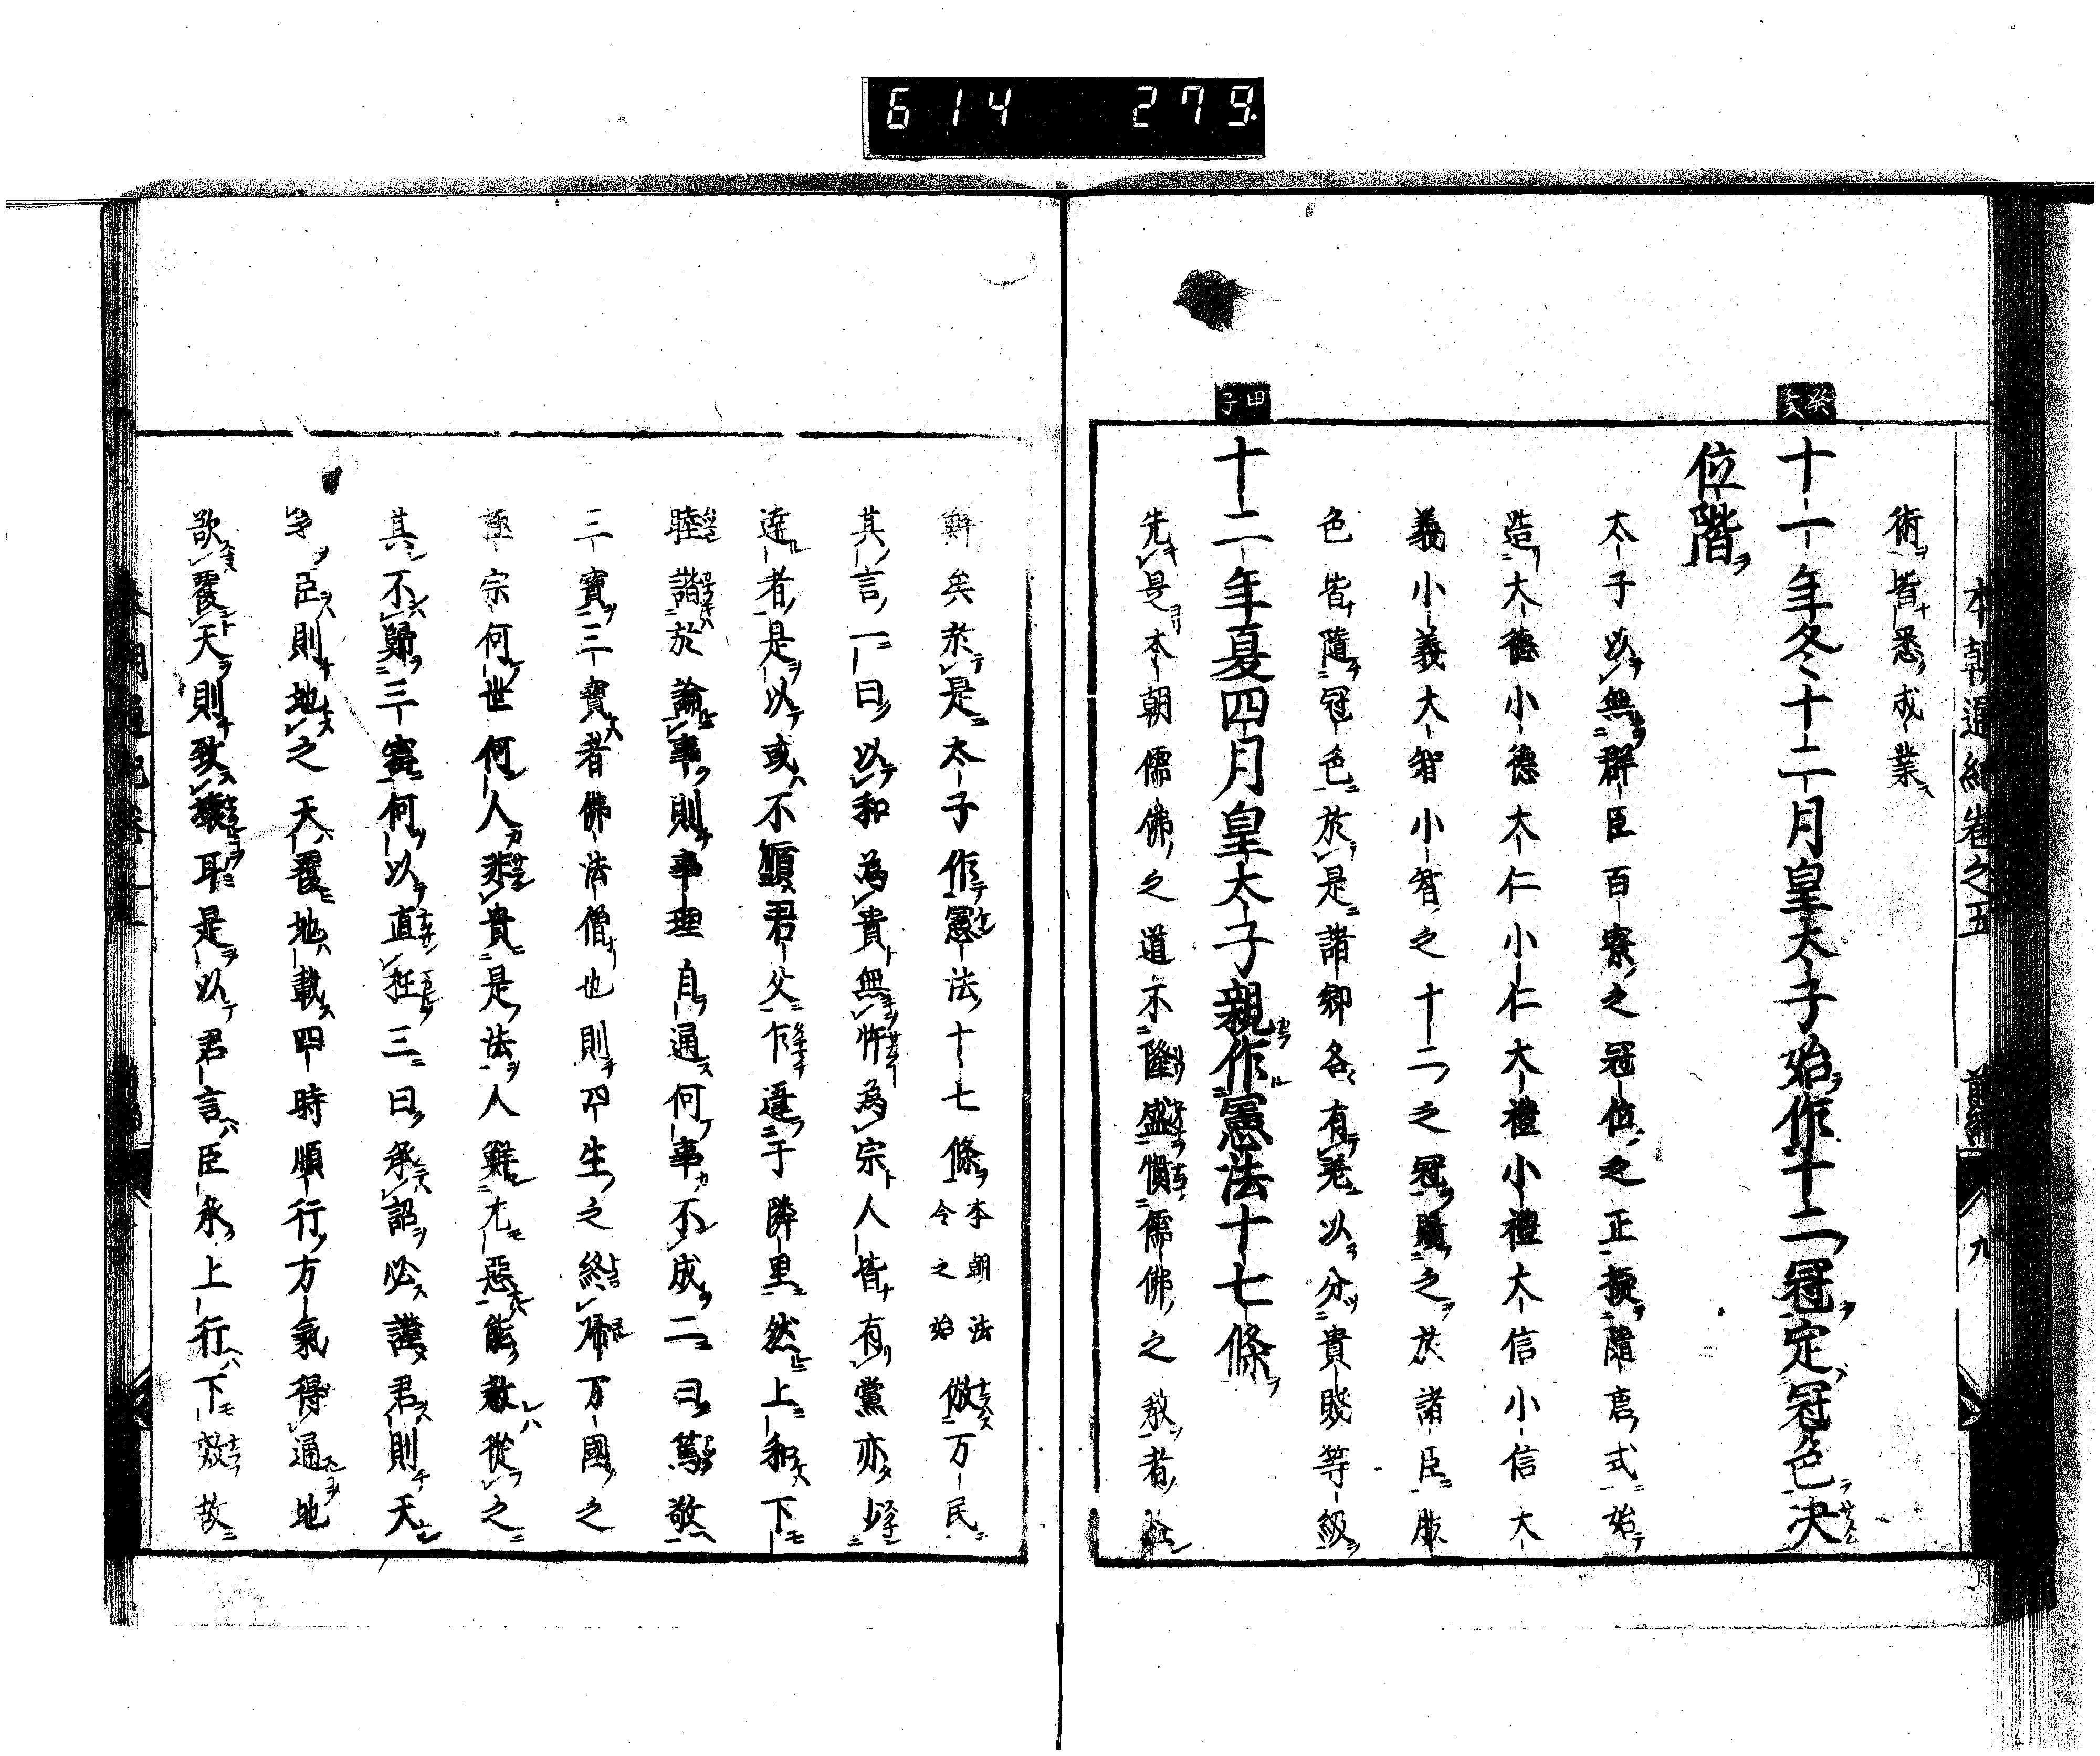 614 279
本朝通紀卷之五 前編 九
術皆悉成業
癸亥
十一年冬十二月皇太子始作十二冠定冠色決
位階
太子以無群臣百寮之冠位之正擬隋唐式始
造大德小德大仁小仁大禮小禮大信小信大
義小義大智小智之十二之冠賜之於諸臣服
色皆隨冠色於是諸卿各有差以分貴賤等級
甲子
十二年夏四月皇太子親作憲法十七條
先是本朝儒佛之道不隆盛慣儒佛之教者
鮮矣於是太子作憲法十七條本朝法令之始倣万民
其言一曰以和為貴無忤為宗人皆有黨亦少
達者是以或不順君父乍違于隣里然上和下
睦諧於論事則事理自通何事不成二曰篤敬
三寶三寶者佛法僧也則四生之終帰万國之
極宗何世何人非貴是法人鮮尤惡能教從之
其不歸三寳何以直枉三曰承詔必謹君則天
之臣則地之天覆地載四時順行方氣得通地
欲覆天則致壞耳是以君言臣承上行下效故